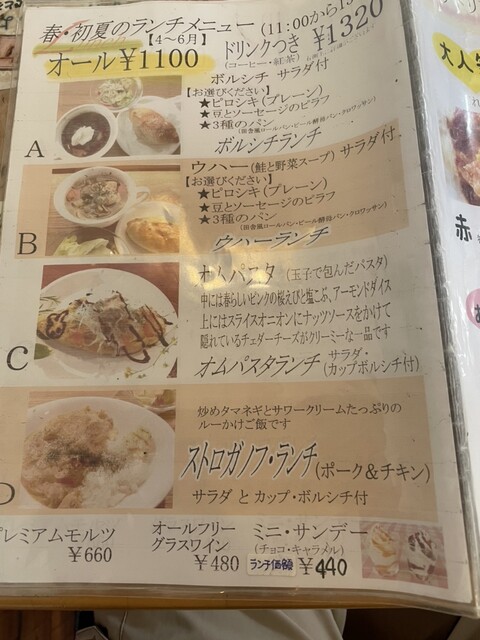 春・初夏のランチメニュー (11:00から
【4～6月】
オール¥1100
ドリンクつき ¥1320
(コーヒー・紅茶)
ボルシチ サラダ付
【お選びください】
★ピロシキ(プレーン)
★豆とソーセージのピラフ
★3種のパン
(田舎風ロールパン・ビール酵母パン・クロワッサン)
A
ボルシチランチ
ウハー(鮭と野菜スープ) サラダ付
【お選びください】
★ピロシキ(プレーン)
★豆とソーセージのピラフ
★3種のパン
(田舎風ロールパン・ビール酵母パン・クロワッサン)
B
ウハーランチ
オムパスタ (玉子で包んだパスタ)
中には春らしいピンクの桜えびと塩こぶ、アーモンドダイス
上にはスライスオニオンにナッツソースをかけて
隠れているチェダーチーズがクリーミーな一品です
C
オムパスタランチ (サラダ・カップボルシチ付)
炒めタマネギとサワークリームたっぷりの
ルーかけご飯です
ストロガノフ・ランチ(ポーク&チキン)
D
サラダ と カップ・ボルシチ付
プレミアムモルツ
¥660
オールフリー
グラスワイン
¥480
ミニ・サンデー
(チョコ・キャラメル)
ランチ価額 ¥440
大人
赤